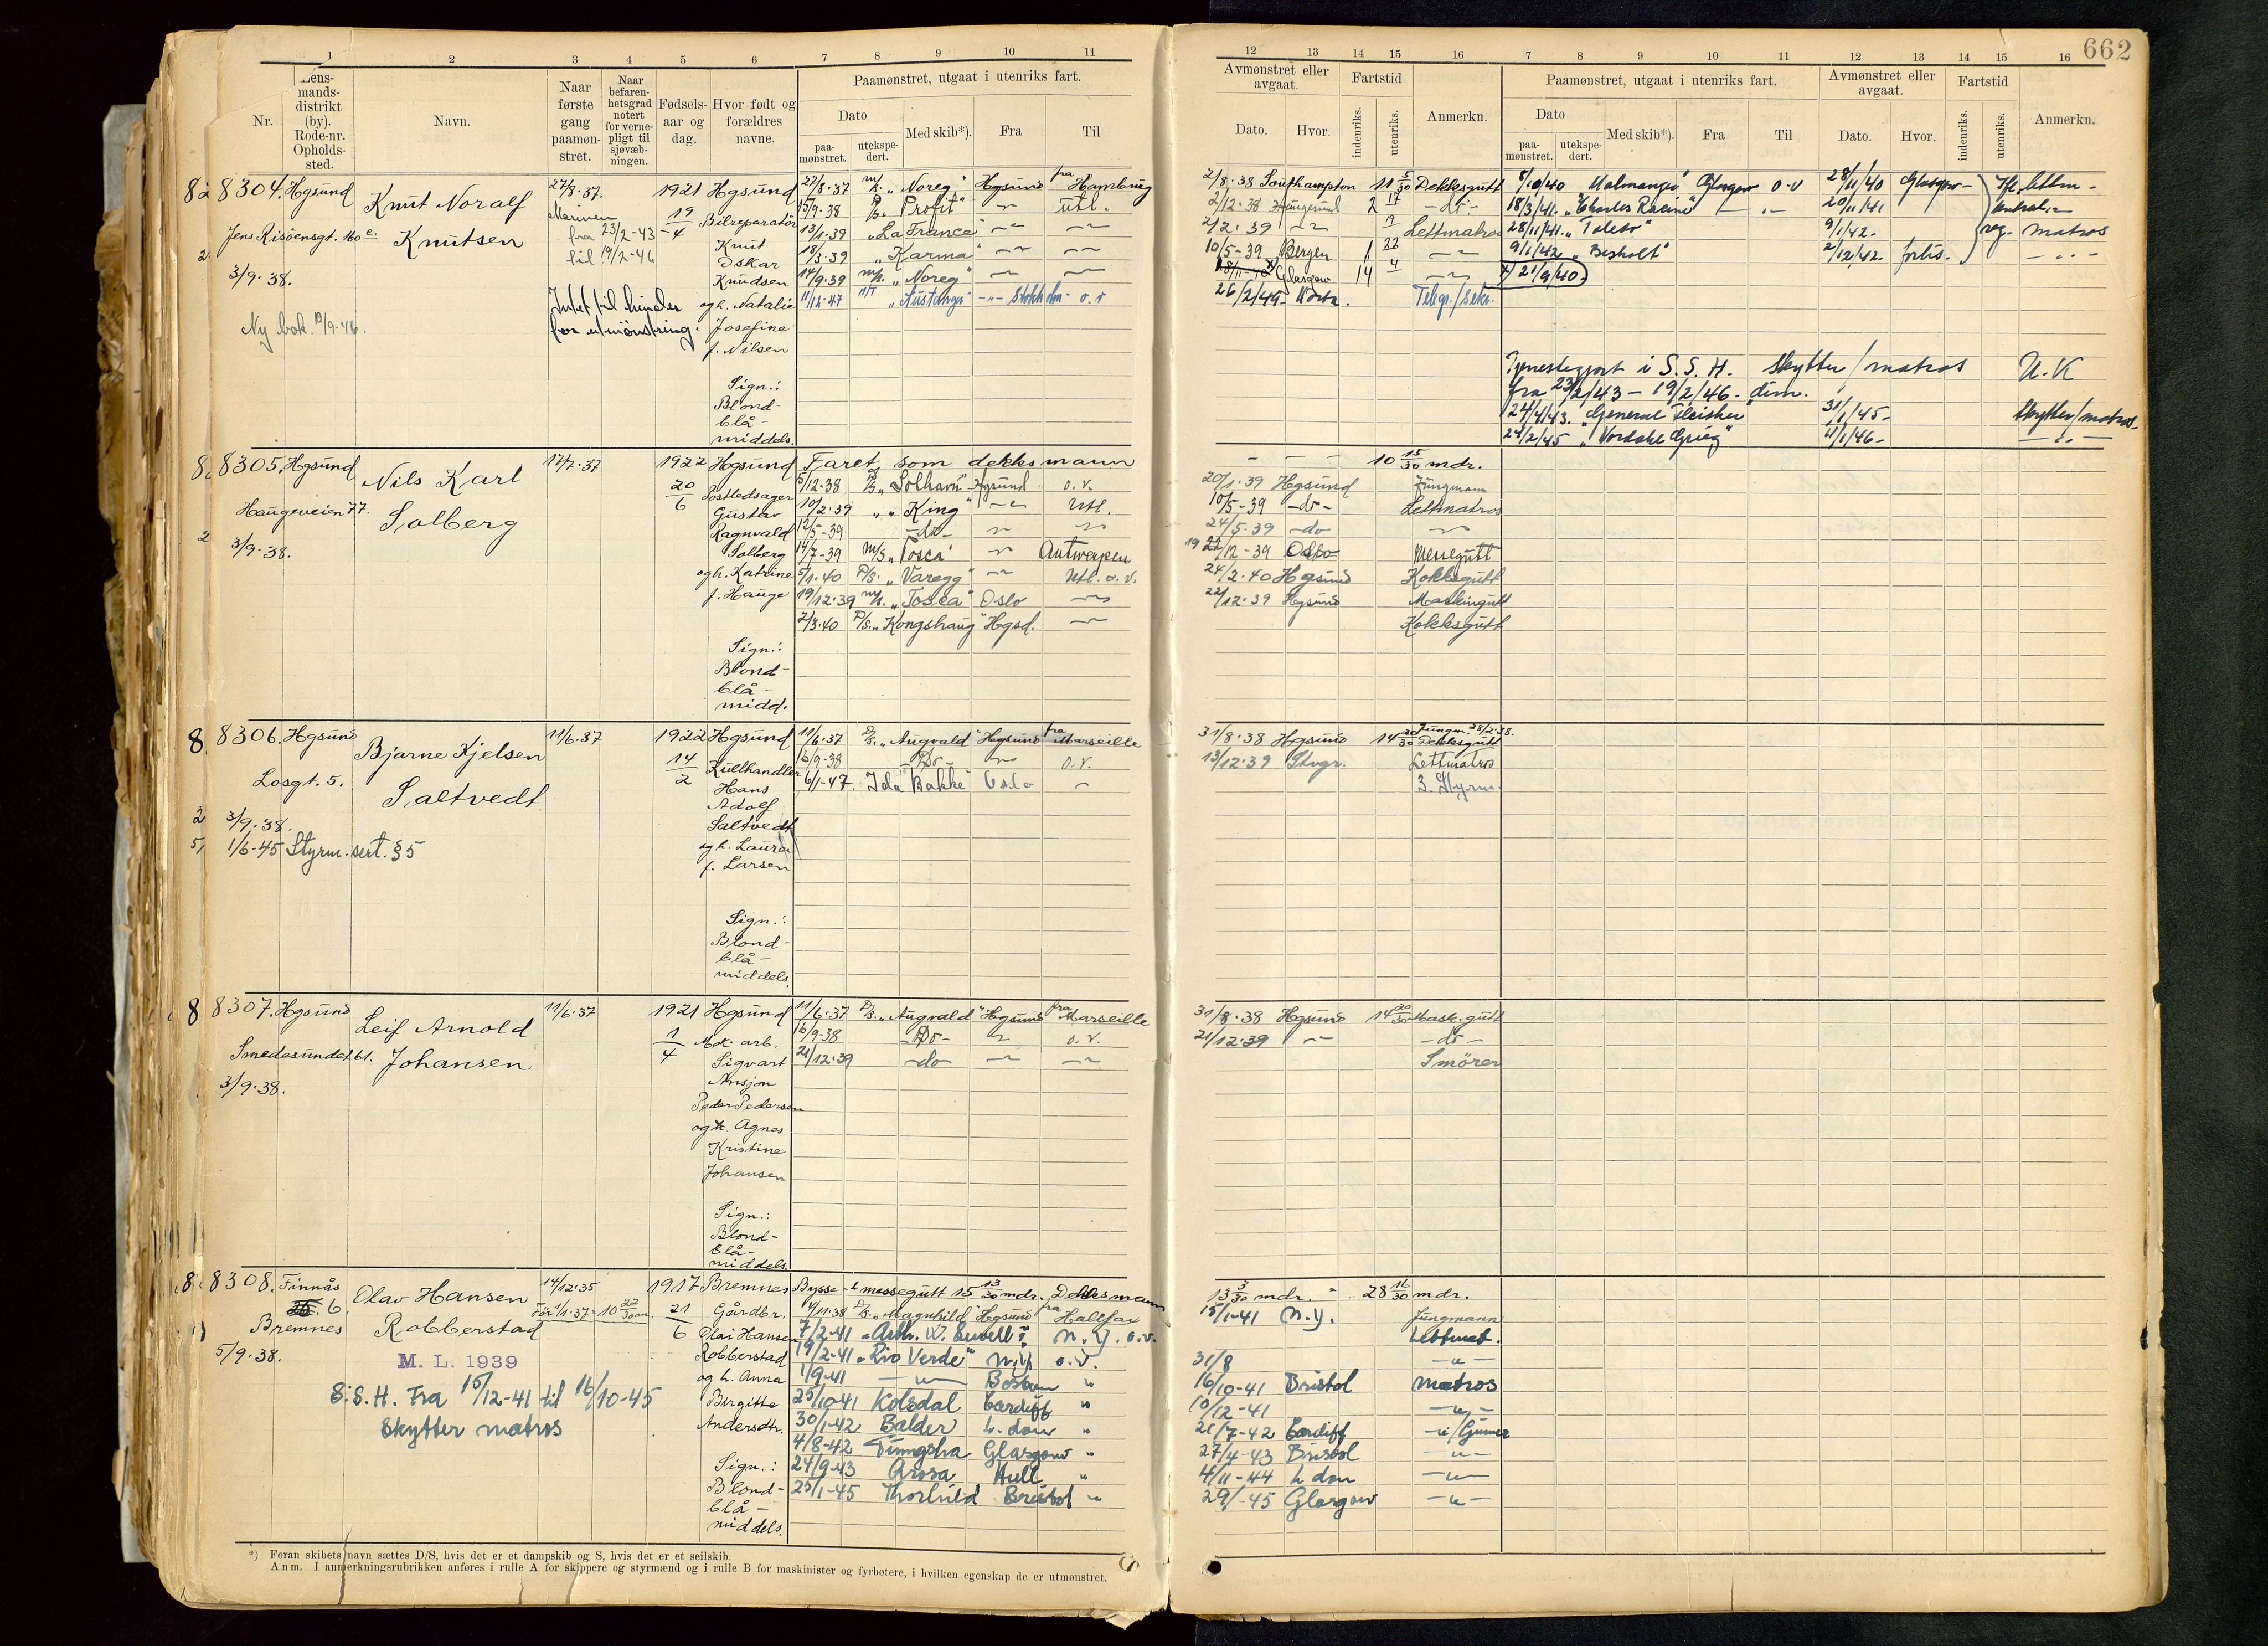 662
1 2 3 4 5 6 7 8 9 10 11
Nr.
Lens-
mands-
distrikt
(by).
Rode-nr.
Opholds-
sted.
Navn.
Naar
første
gang
paamøn-
stret.
Naar
befaren-
hetsgrad
notert
for verne-
pligt til
sjøvæb-
ningen.
Fødsels-
aar og
dag.
Hvor født og
forældres
navne.
Paamønstret, utgaat i utenriks fart.
Dato
paa-
mønstret.
utekspe-
dert.
Med skib*).
Fra
Til
8304. Hgsund
Knut Noralf
Knutsen
Jens Risøensgt. 160 e.
3/9.38.
Ny bok 19/9.46.
27/8.37.
Marinen
fra 23/2-43
til 19/2-46
Intet til hinder
for utmönstring.
1921
19/4
Hgsund
Bilreparatör
Knut
Oskar
Knudsen
og h. Natalie
Josefine
f. Nilsen
Sign.:
Blond-
blå-
middels.
27/8.37 m/s. "Noreg" Hgsund fra Hamburg
15/9.38 D/s. "Profit" utl.
13/1.39 "La Franca"
18/3.39 "Karma"
14/9.39 m/s. "Noreg"
11/12-47 M/T "Austanger" Stokholm o.v
8305. Hgsund
Nils Karl
Solberg
Haugeveien 77.
3/9.38.
17/7.37
1922
20/6
Hgsund
Postledsager
Gustav
Ragnvald
Solberg
og h. Katrine
f. Hauge
Sign.:
Blond-
blå-
midd.
Faret som dekksmann
5/12.38 D/s. "Solhavn" Hgsund o.v.
10/2.39 " "King" Utl.
12/5-39 -do-
14/7-39 M/s "Tosca" Antwerpen
5/1.40 D/s. "Varegg" Utl. o.v.
19/12.39 m/s. "Tosca" Oslo
2/3.40 D/s. "Kongshaug" Hgsd.
8306. Hgsund
Bjarne Kjelsen
Saltvedt
Losgt. 5.
3/9.38.
1/6-45 Styrm. sert. § 5
11/6.37
1922
14/2
Hgsund
Kullhandler
Hans
Adolf
Saltvedt
og h. Laura
f. Larsen
Sign.:
Blond-
blå-
middels.
11/6.37 D/s. "Augvald" Hgsund fra Marseille
16/9.38 -Do- o.v.
6/1-47 Ida Bakke" Oslo
8307. Hgsund
Leif Arnold
Johansen
Smedesundet 61.
3/9.38.
11/6.37
1921
1/4
Hgsund
Mek. arb.
Sigvart
Ansjon
Peder Pedersen
og h. Agnes
Kristine
Johansen
Sign.:
Blond-
blå-
middels.
11/6.37 D/s. "Augvald" Hgsund fra Marseille
16/9.38 -Do- o.v.
21/12.39 -do-
8308. Finnås
6.
Bremnes
5/9.38.
Olav Hansen
Robberstad
M. L. 1939
S.S.H. Fra 15/12-41 til 16/10-45
Skytter matros
14/12.35
Før 1/1.37 = 10 22/30 m.
1917
21/6
Bremnes
Gårdbr.
Olai Hansen
Robberstad
og h. Anna
Birgitte
Andersdtr.
Sign.:
Blond-
blå-
middels.
Bysse- & messegutt 15 13/30 mdr. Dekksmann
14/11.38 D/s. "Magnhild" Hgsund fra Halifax
7/2-41 "Arth. W. Sewell" N.Y. o.v.
19/2-41 "Rio Verde" N.Y. o.v.
1/9-41 Boston "
25/10-41 Kolsdal Cardiff "
30/1-42 Balder L. don "
4/8-42 Tungsha Glasgow "
24/9-43 Arosa Hull "
25/1-45 Thorhild Bristol "
*) Foran skibets navn sættes D/S, hvis det er et dampskib og S, hvis det er et seilskib.
Anm. I anmerkningsrubrikken anføres i rulle A for skippere og styrmænd og i rulle B for maskinister og fyrbøtere, i hvilken egenskap de er utmønstret.
12 13 14 15 16 7 8 9 10 11 12 13 14 15 16
Avmønstret eller
avgaat.
Dato. Hvor.
Fartstid
indenriks. utenriks.
Anmerkn.
Paamønstret, utgaat i utenriks fart.
Dato
paa-
mønstret.
utekspe-
dert.
Med skib*).
Fra
Til
Avmønstret eller
avgaat.
Dato. Hvor.
Fartstid
indenriks. utenriks.
Anmerkn.
2/8.38 Southampton 11 5/30 Dekksgutt
2/12.38 Haugesund 2 17 -do-
2/2.39 Lettmatros
10/5-39 Bergen 1 22
Glasgow 14 4
26/2/49
Telegr./sekr.
8/10/40 "Malmanger" Glasgow o.v 28/11/40 Glasgow lettm -
18/3/41. "Charles Racine" 20/11/41
28/11/41. "Taleto" 9/1/42. matros
9/1/42 2/12/42. forlis.
x) 21/9/40
Tjenestegjort i S.S.H. Skytter/matros U.K
fra 23/2/43 - 19/2/46. dim.
24/4/43. "General Fleisher" 31/1/45- Skytter/matros
24/2/45 "Nordahl Grieg" 11/1/46-
10 15/30 mdr.
20/1.39 Hgsund Jungmann
10/5-39 -do- Lettmatros
24/5.39 -do
19/12-39 Oslo Messegutt
24/2.40 Hgsund Kokksgutt
22/12.39 Hgsund Maskingutt
Kokksgutt
31/8.38 Hgsund 14 20/30 Jungm. 28/2.38.
Dekksgutt
13/12.39 Stvgr. Lettmatros
3. Styrm.
31/8.38 Hgsund 14 20/30 Mask. gutt
21/12.39 -do-
Smörer
13 3/30 mdr. 28 16/30 mdr.
15/1-41 N.Y. Jungmann
Lettmat.
31/8
16/10-41 Bristol Matros
10/12-41
21/7-42 Cardiff /Gunner
27/4-43 Bristol
4/11-44 L don
29/-45 Glasgow